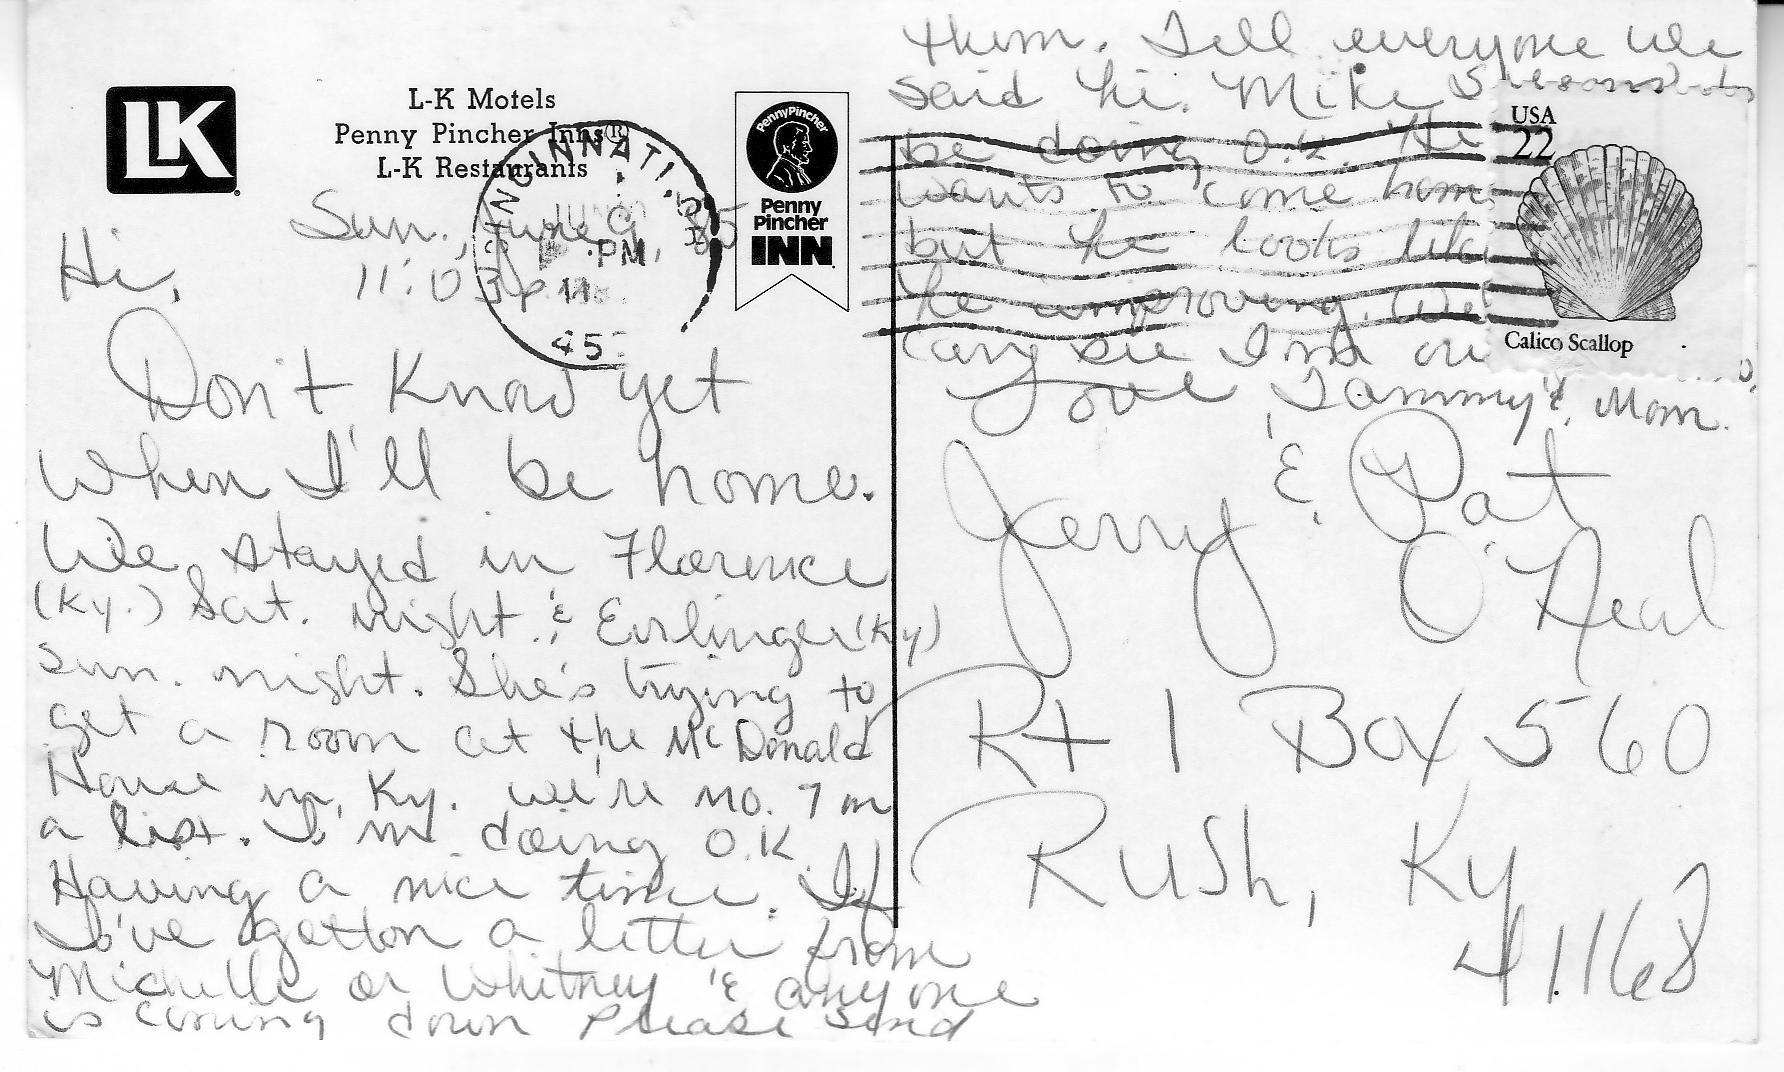 LK
L-K Motels
Penny Pincher Inns®
L-K Restaurants
PennyPincher
Penny
Pincher
INN
CINCINNATI,
PM
45
USA
22
Calico Scallop
Sun., June 9, 85
11:03 pm
Hi,
Don't know yet
when I'll be home.
We stayed in Florence
(Ky.) Sat. night & Erlinger (Ky)
Sun. night. She's trying to
get a room at the McDonald
House in, Ky. we're no. 7 on
a list. I'm doing O.K.
Having a nice time. If
I've gotton a letter from
Michelle or Whitney & anyone
is coming down please send
them. Tell everyone we
said hi. Mike
be doing O.K. He
wants to come hom
but he looks like
he improving. We
Love, Tammy & Mom.
Jerry & Pat
O'Neal
Rt 1 Box 560
Rush, Ky
41168